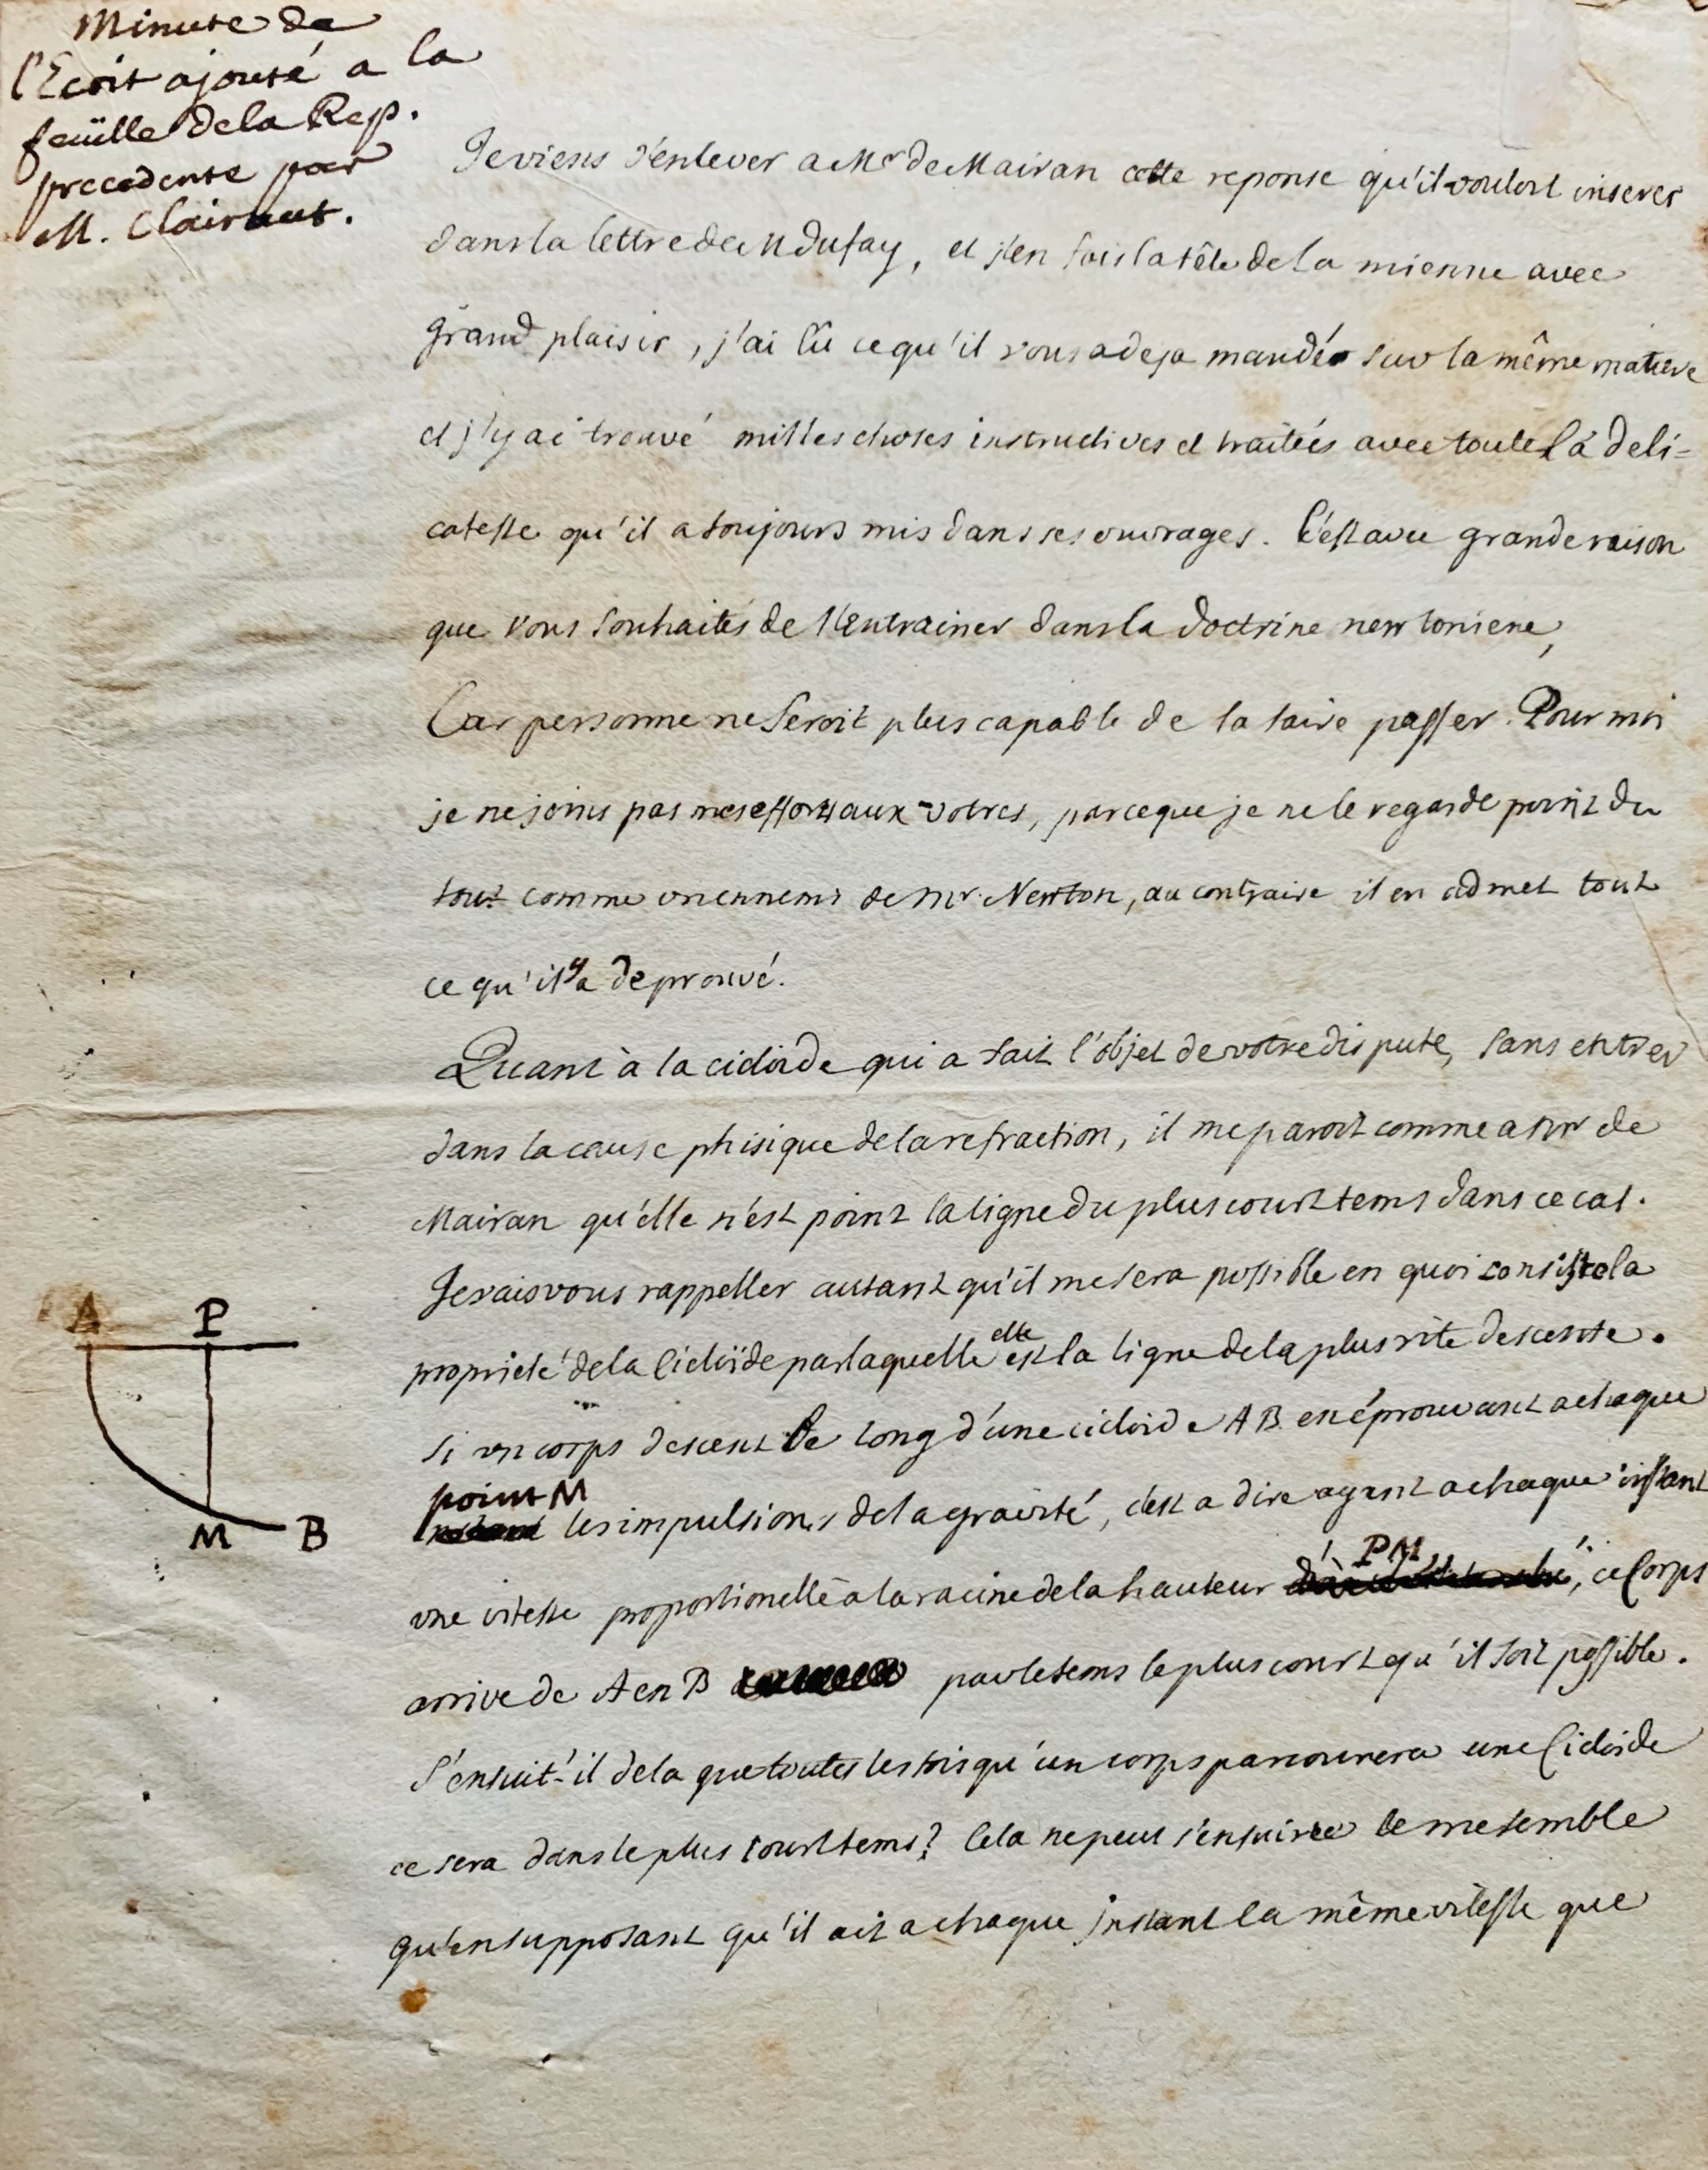 Minute de
l'Ecrit ajouté a la
feüille de la Rep.
precedente par
M. Clairaut.
Je viens d'enlever a Mr de Mairan cette reponse qu'il vouloit inserer
dans la lettre de M Dufay, et j'en fais la tête de la mienne avec
grand plaisir, j'ai lû ce qu'il vous a deja mandé sur la même matiere
et j'y ai trouvé milles choses instructives et traitées avec toute la deli=
catesse qu'il a toujours mis dans ses ouvrages. C'est avec grande raison
que vous souhaités de l'entrainer dans la doctrine newtoniene,
Car personne ne seroit plus capable de la faire passer. Pour moi
je ne joins pas mes efforts aux votres, parceque je ne le regarde point du
tout comme un ennemi de Mr. Newton, au contraire il en admet tout
ce qu'il y a de prouvé.
Quant à la cicloide qui a fait l'objet de votre dispute, sans entrer
dans la cause phisique de la refraction, il me paroit comme a Mr de
Mairan qu'elle n'est point la ligne du plus court tems dans ce cas.
Je vais vous rappeller autant qu'il me sera possible en quoi consiste la
proprieté de la Cicloïde par laquelle elle est la ligne de la plus vite descente.
Si un corps descent le long d'une cicloide AB en éprouvant a chaque
point M les impulsions de la gravité, c'est a dire ayant a chaque instant
une vitesse proportionelle a la racine de la hauteur PM, ce Corps
arrive de A en B par le tems le plus court qu'il soit possible.
S'ensuit-il de la que toutes les fois qu'un corps parcourera une Cicloide
ce sera dans le plus court tems? Cela ne peut s'ensuivre ce me semble
qu'en supposant qu'il ait a chaque instant la même vitesse que
A P
M B